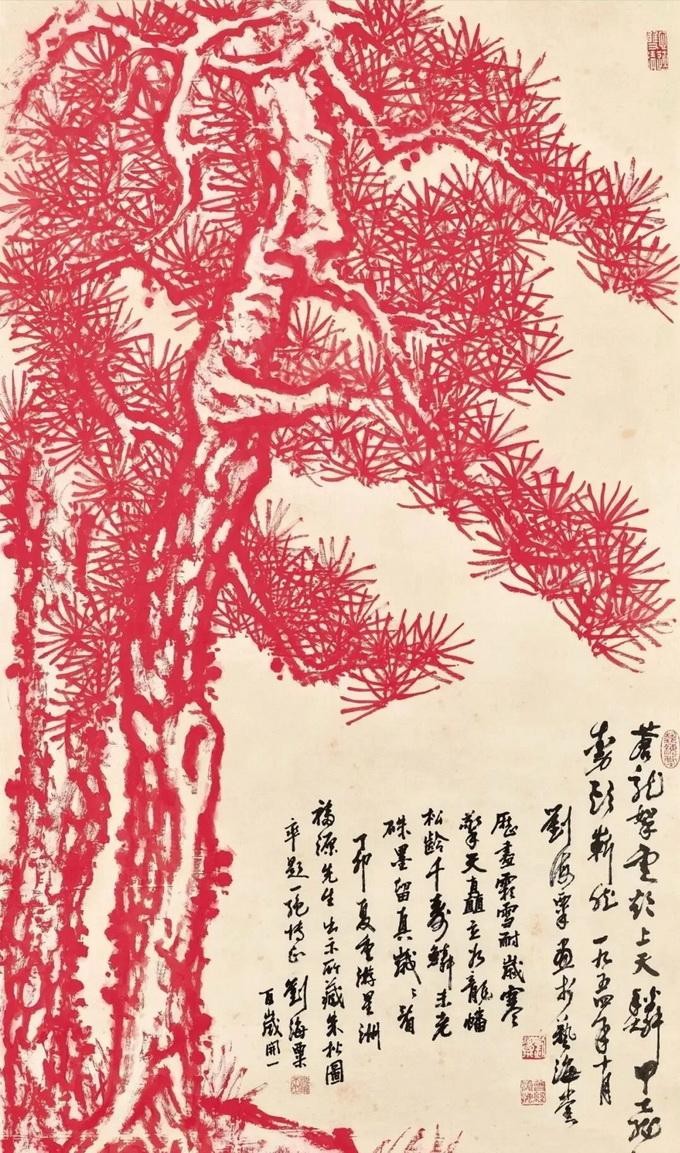 蒼龍挐雲欲上天 鱗甲
一九五四年十月
劉海粟画於藝海堂
歷盡霜雪耐歲寒
擎天矗立如龍蟠
松齡千壽鱗未老
硃墨留真歲々看
丁卯夏重游星洲
福源先生出示所藏朱松圖
率題一絕博正 劉海粟
百歲開一